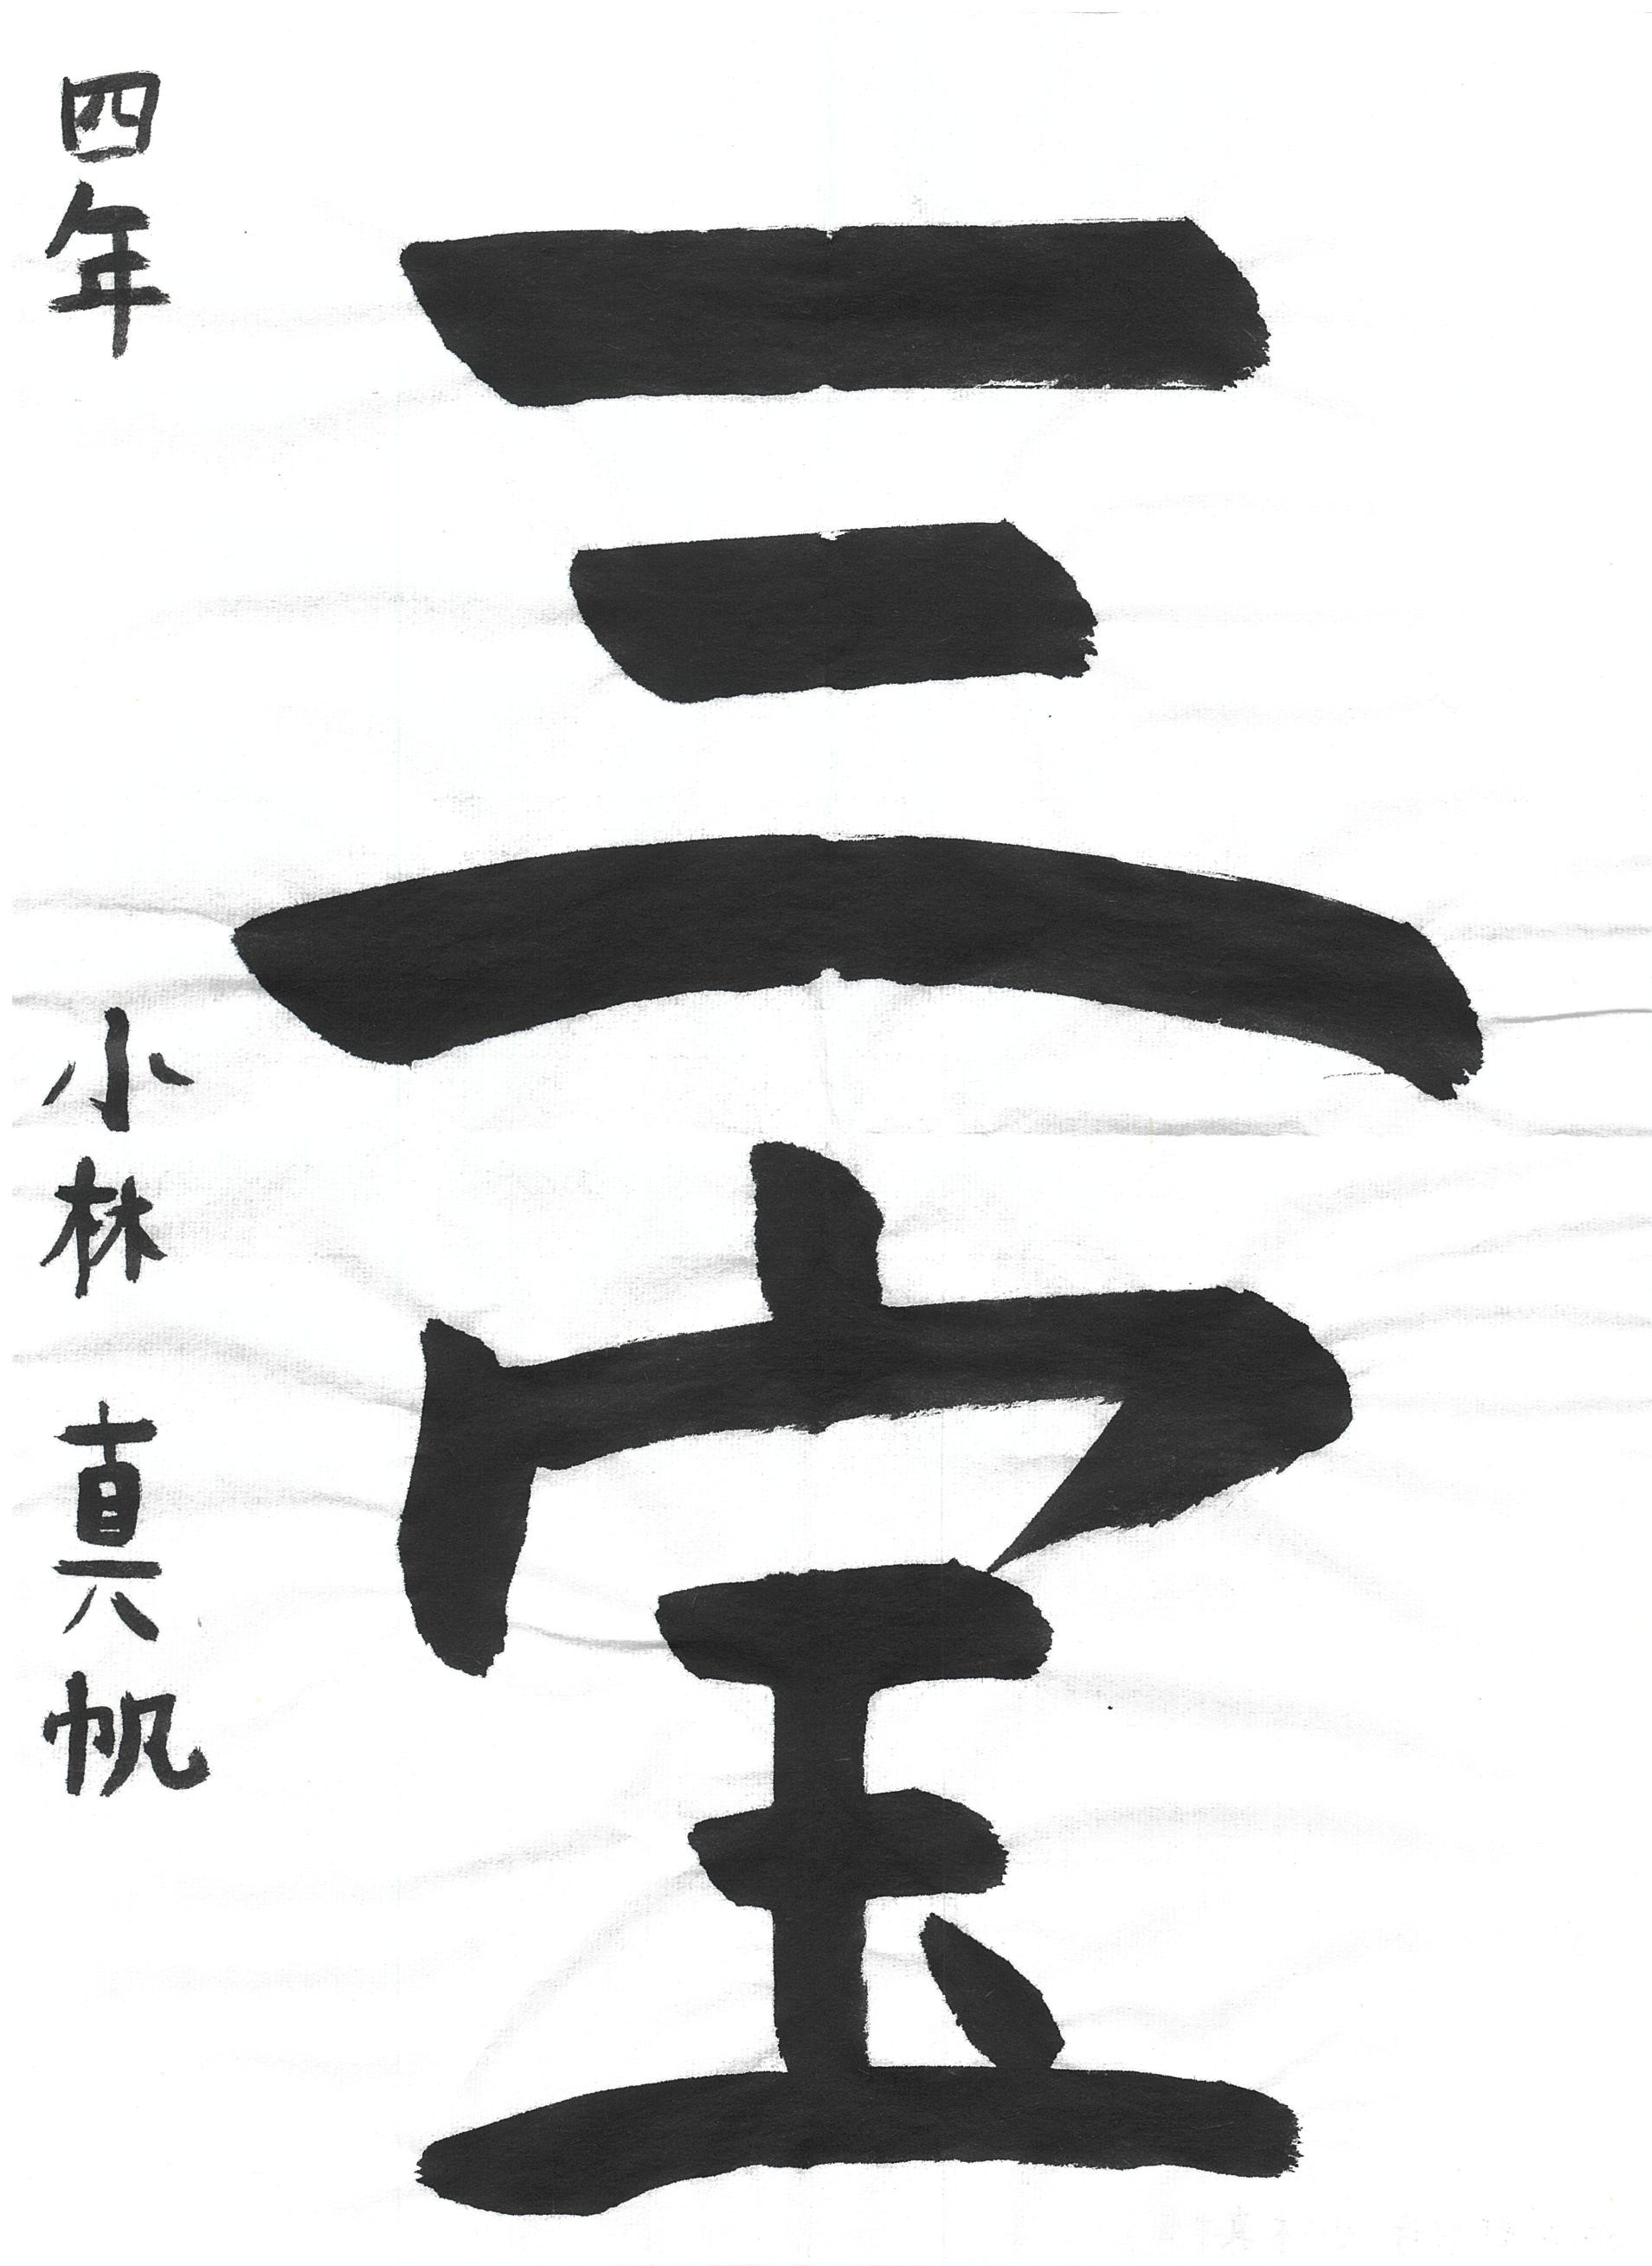 三宝
四年 小林 真帆